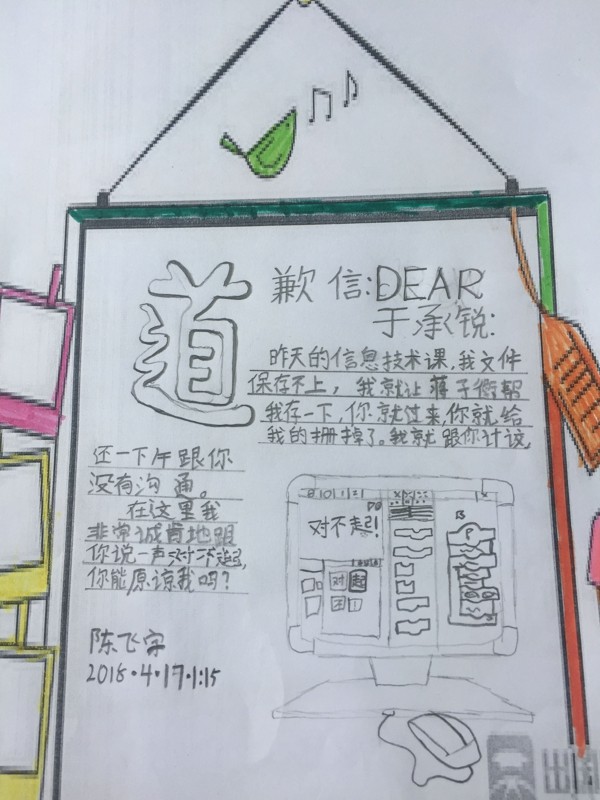 道歉信:DEAR
于承锐:
昨天的信息技术课,我文件
保存不上,我就让蒋子衡帮
我存一下,你就过来,你就给
我的删掉了。我就跟你计议,
还一下午跟你
没有沟通。
在这里我
非常诚肯地跟
你说一声对不起,
你能原谅我吗?
陈飞宇
2018·4·17·1:15
对不起!
对起
不!